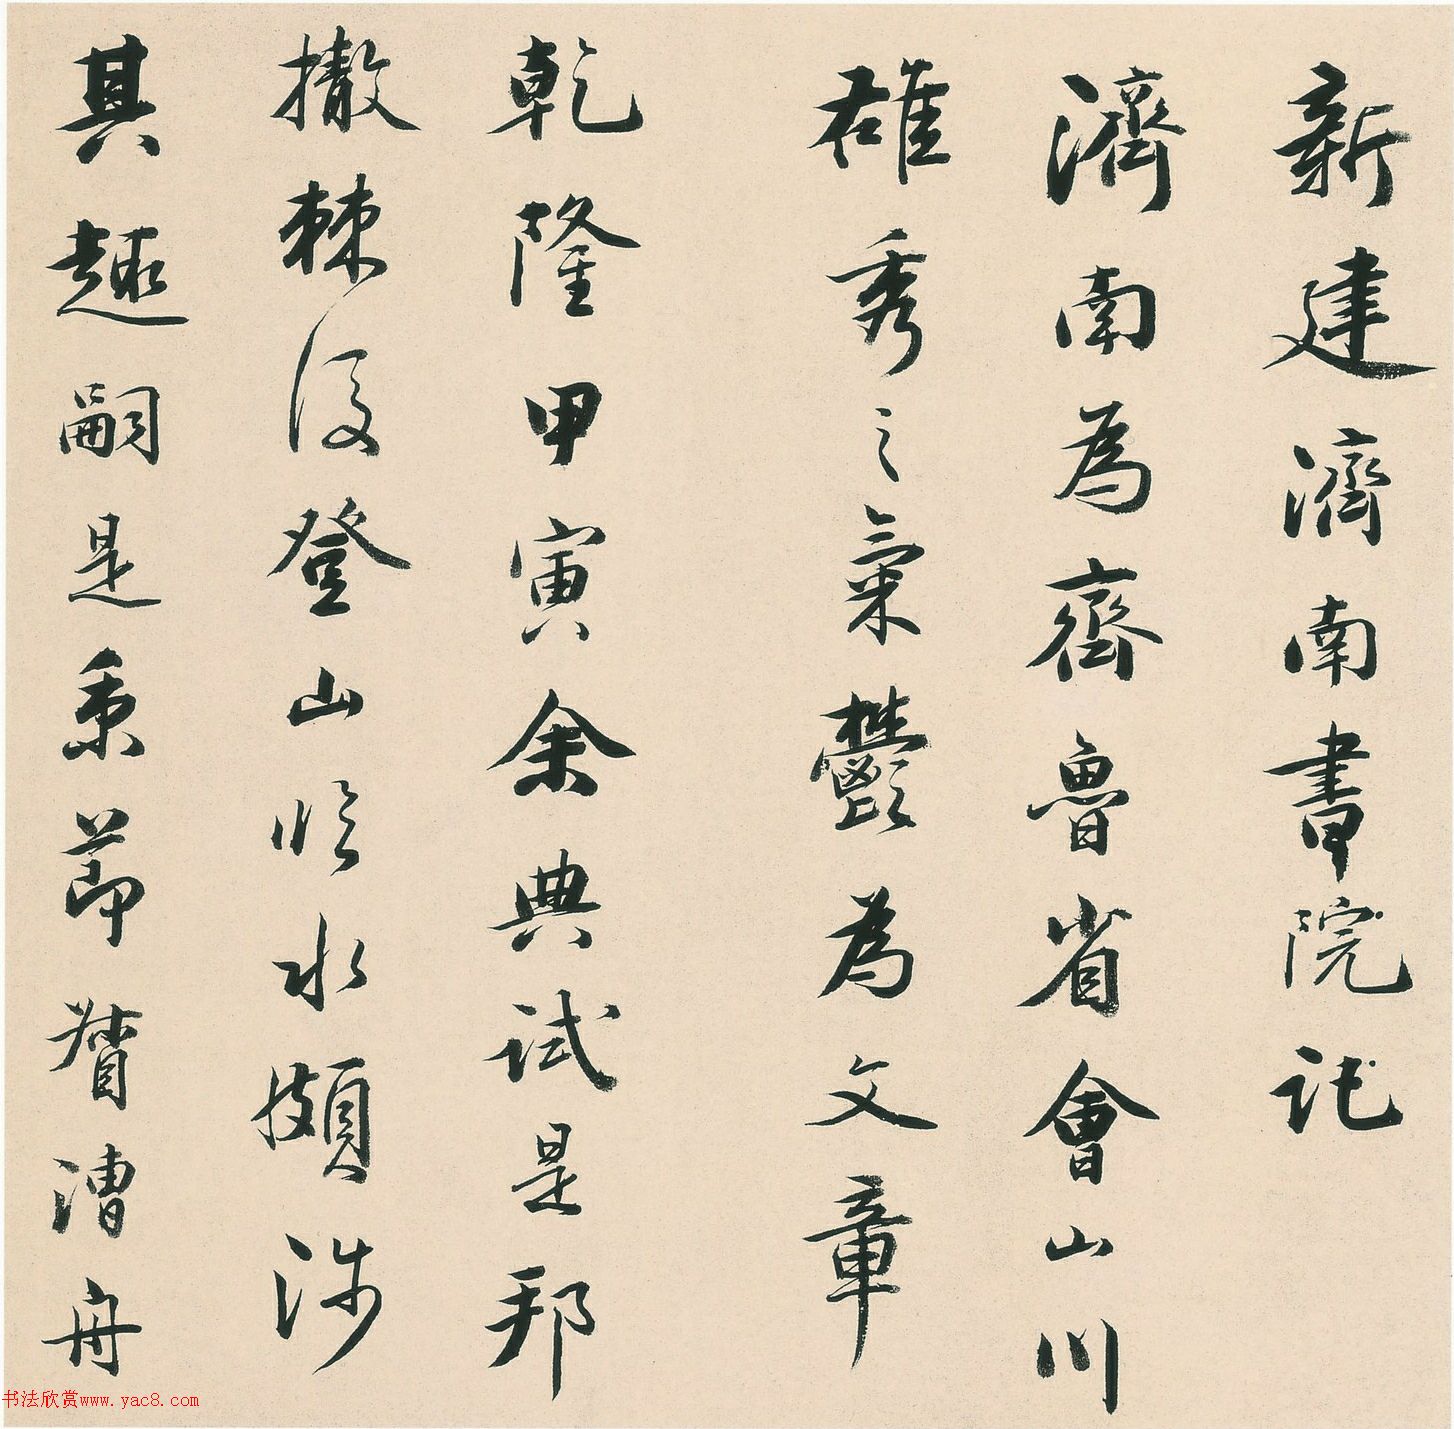 新建濟南書院記
濟南為齊魯省會山川
雄秀之氣鬱為文章
乾隆甲寅余典試是邦
撤棘後登山臨水頗涉
其趣嗣是秉節督漕舟
书法欣赏www.yac8.com